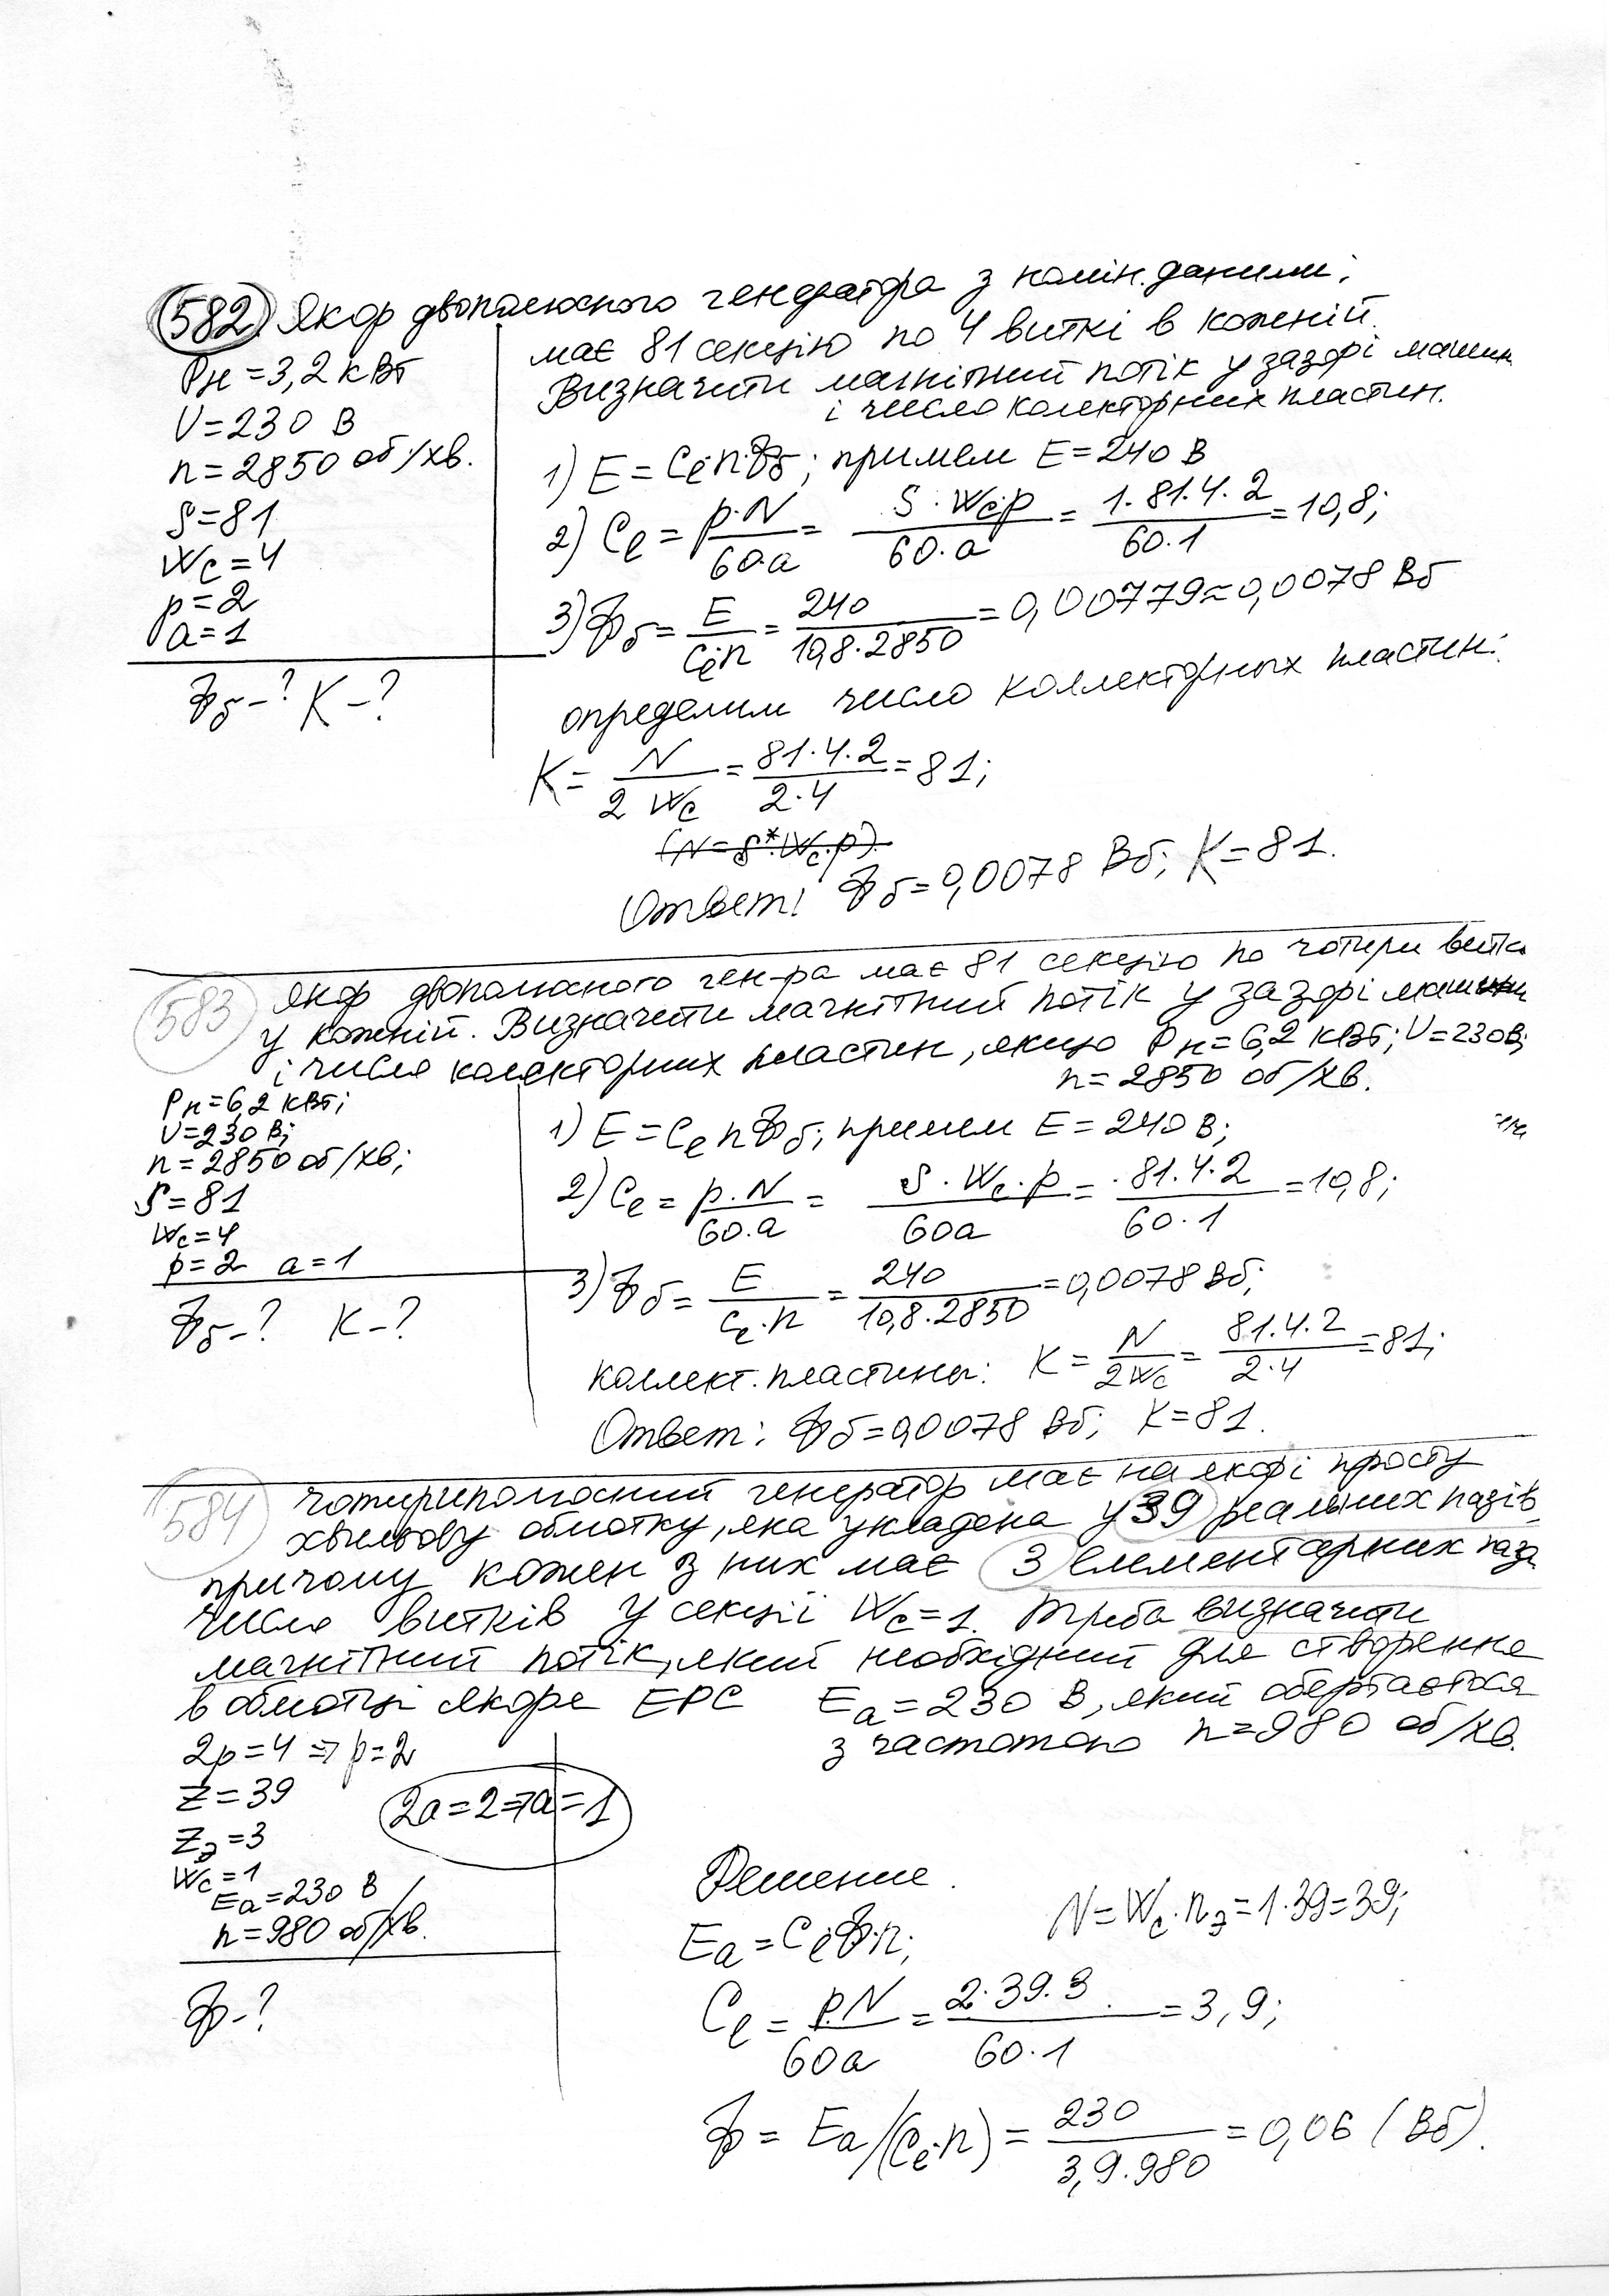 582. Якор двополюсного генератора з номін. даними:
має 81 секцію по 4 виткі в кожній.
Визначити магнітний потік у зазорі машин
і число колекторних пластин.
Pн = 3,2 кВт
U = 230 В
n = 2850 об/хв.
S = 81
Wc = 4
p = 2
a = 1
Фδ - ? K - ?
1) E = Ce·n·Фδ; примем E = 240 В
2) Ce = p·N / 60·a = S·Wc·p / 60·a = 1·81·4·2 / 60·1 = 10,8;
3) Фδ = E / Ce·n = 240 / 10,8·2850 = 0,00779 ≈ 0,0078 Вб
определим число коллекторных пластин:
K = N / 2 Wc = 81·4·2 / 2·4 = 81;
(N = S*Wc·p).
Ответ: Фδ = 0,0078 Вб; K = 81.
583 Якор двополюсного ген-ра має 81 секцію по чотири витка
у кожній. Визначити магнітний потік у зазорі машини
і число колекторних пластин, якщо Pн = 6,2 кВт; U = 230 В;
n = 2850 об/хв.
Pн = 6,2 кВт;
U = 230 В;
n = 2850 об/хв;
S = 81
Wc = 4
p = 2 a = 1
Фδ - ? K - ?
1) E = Ce n Фδ; примем E = 240 В;
2) Ce = p·N / 60·a = S·Wc·p / 60a = 81·4·2 / 60·1 = 10,8;
3) Фδ = E / Ce·n = 240 / 10,8·2850 = 0,0078 Вб;
коллект. пластины: K = N / 2Wc = 81·4·2 / 2·4 = 81;
Ответ: Фδ = 0,0078 Вб; K = 81.
584 Чотириполюсний генератор має на якорі просту
хвильову обмотку, яка укладена у 39 реальних пазів,
причому кожен з них має 3 елементарних паза
число витків у секції Wc = 1. Треба визначити
магнітний потік, який необхідний для створення
в обмотці якоря ЕРС Ea = 230 В, який обертається
з частотою n = 980 об/хв.
2p = 4 ⇒ p = 2
Z = 39
Zэ = 3
Wc = 1
Ea = 230 В
n = 980 об/хв.
2a = 2 ⇒ a = 1
Ф - ?
Решение.
Ea = Ce·Ф·n; N = Wc·nэ = 1·39 = 39;
Ce = p·N / 60a = 2·39·3 / 60·1 = 3,9;
Ф = Ea/(Ce·n) = 230 / 3,9·980 = 0,06 (Вб).